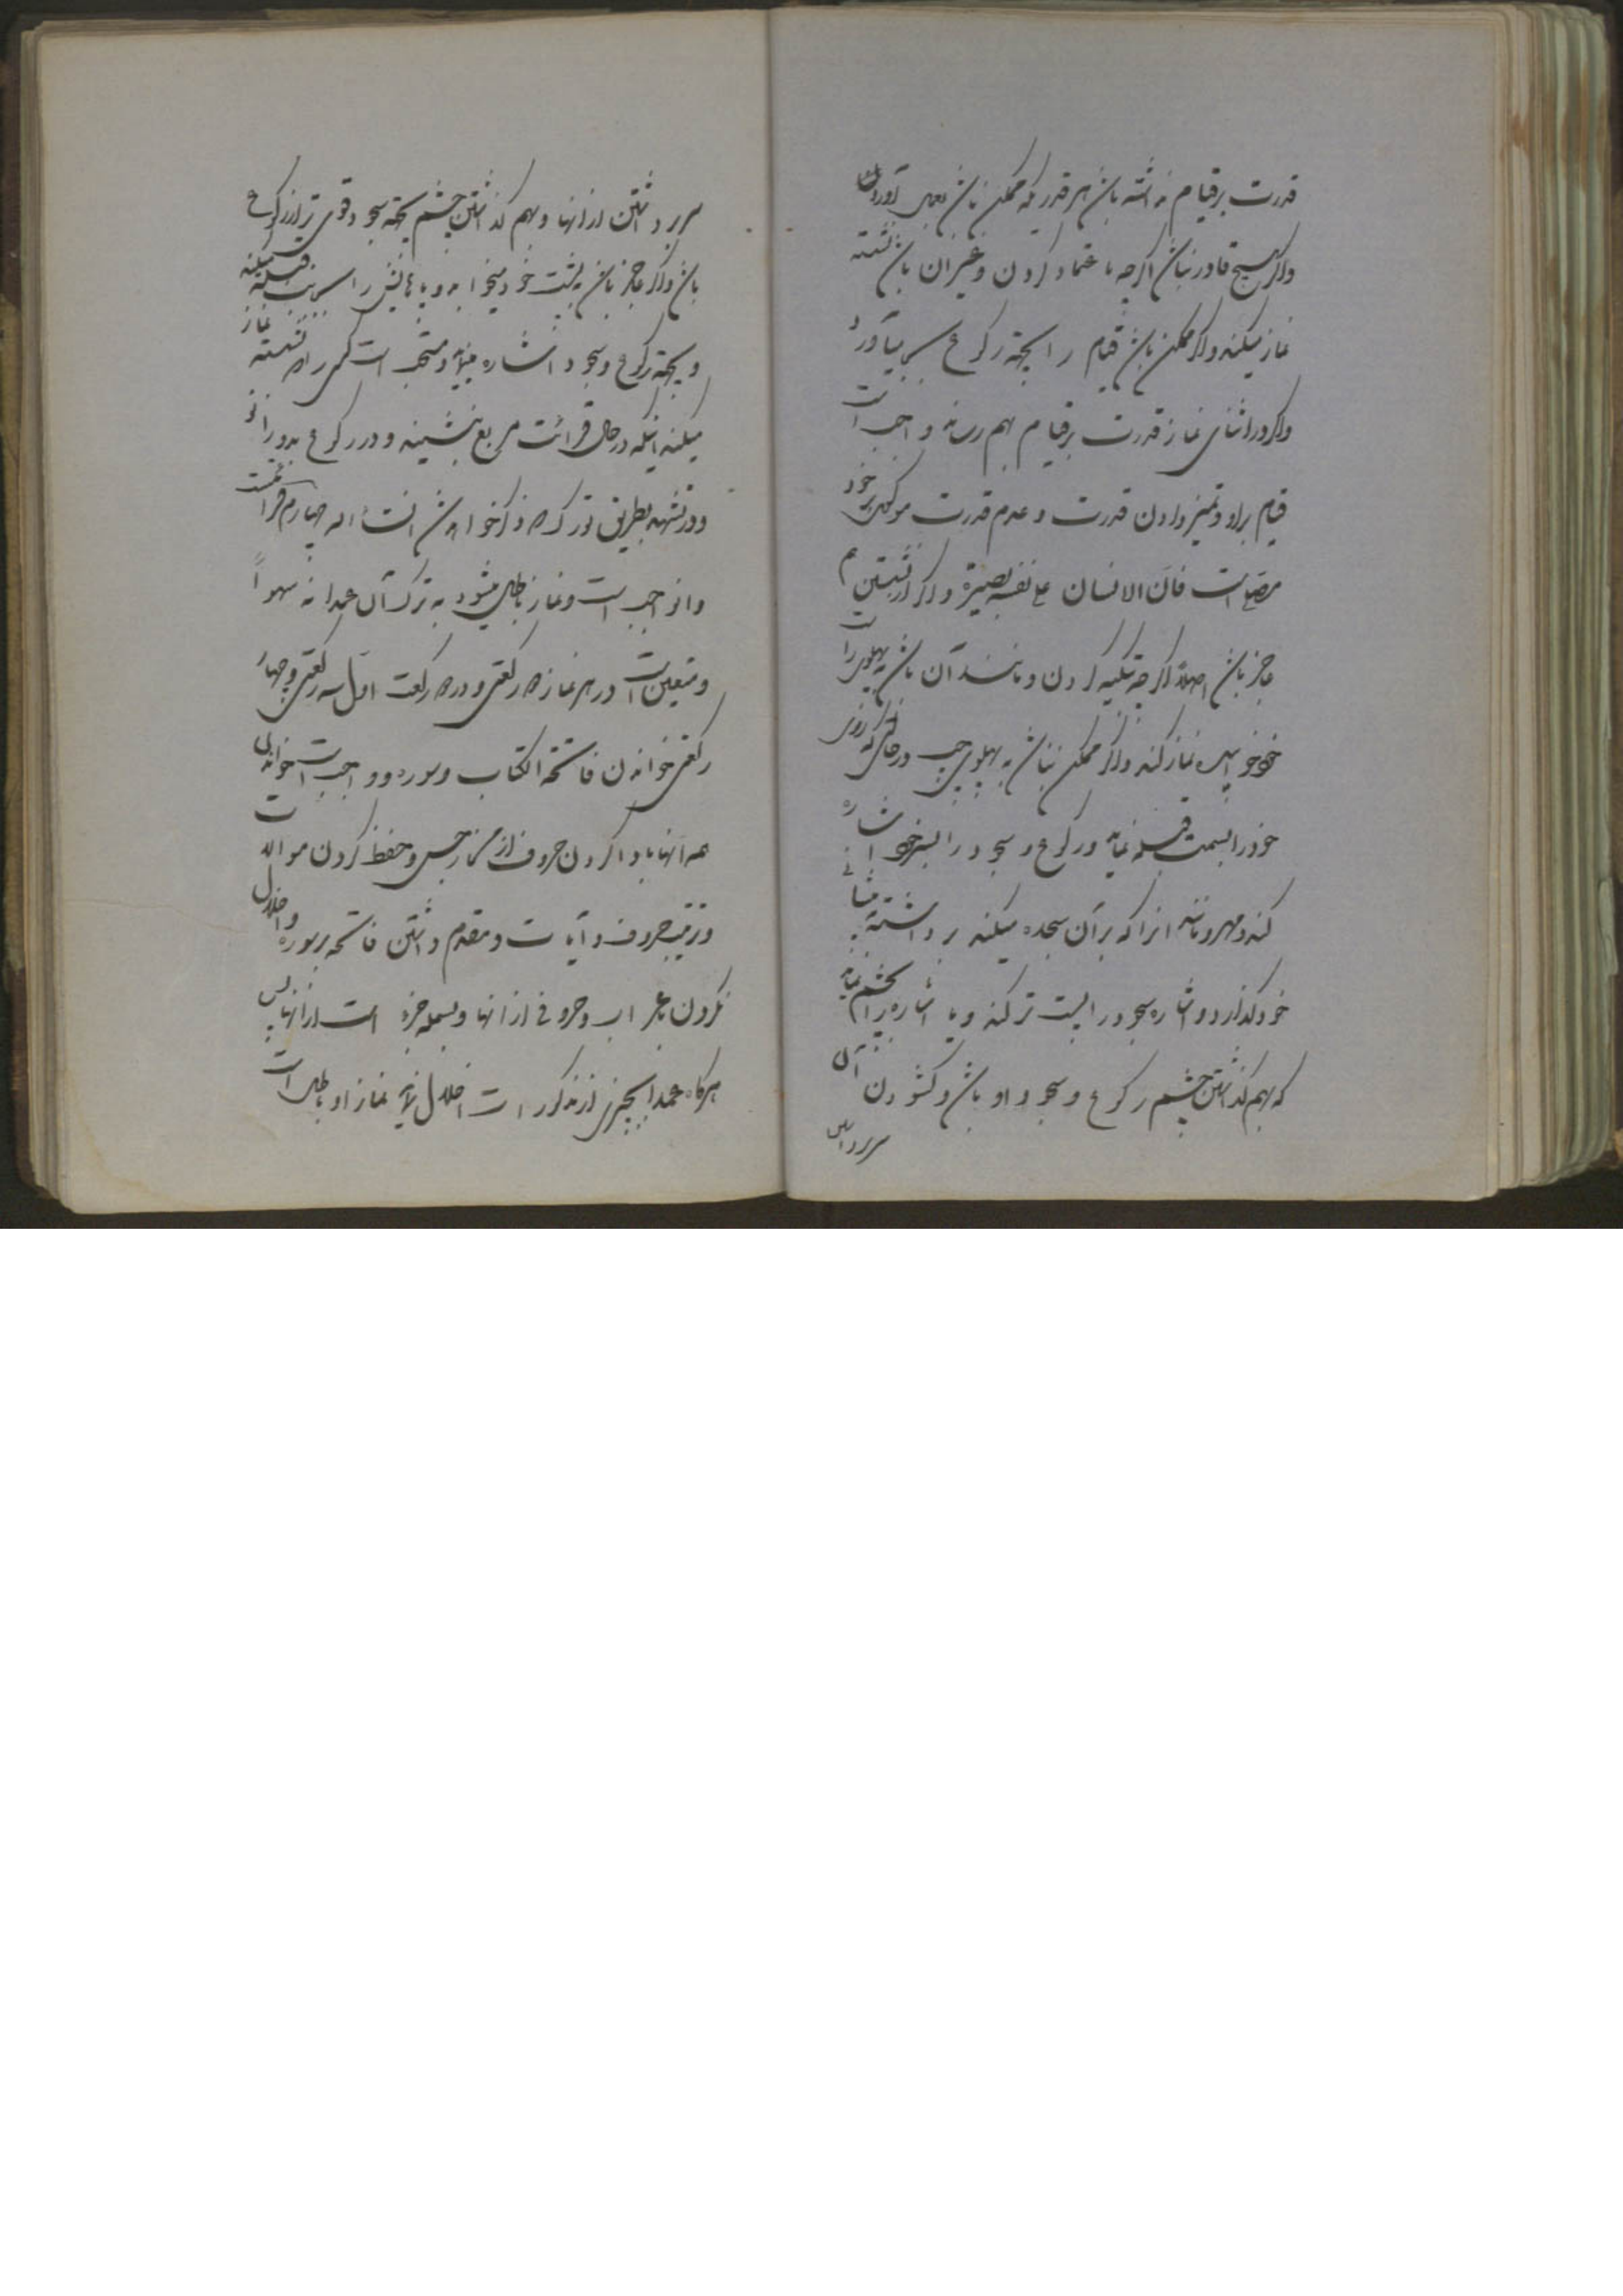 قدرت بر قیام نداشته باشد هر قدر که ممکن باشد بعمل آوردن
واگر هیچ قادر نباشد اگرچه باعتماد کردن و غیر آن باشد نشسته
نماز میکند واگر ممکن باشد قیام را بجهة رکوع بر میآورد
واگر در اثنای نماز قدرت بر قیام بهم رساند واجب است
قیام بر او و تمیز دادن قدرت و عدم قدرت موکول بر خود
مصلی است فانّ الانسان علی نفسه بصیرة واگر از نشستن هم
عاجز باشد اصلاً اگرچه بتکیه کردن و مانند آن باشد به پهلوی راست
خود خوابیده نماز کند واگر ممکن نباشد به پهلوی چپ در حالتی که روی
خود را بسمت قبله نماید و رکوع و سجود را بسر خود اشاره
کند و مهر و مانند آنرا که بر آن سجده میکند برداشته به پیشانی
خود گذارد و اشاره سجود را پست تر کند و یا اشاره را بچشم نماید
که بهم گذاشتن چشم رکوع و سجود او باشد و گشودن آن
سر برداشتن
سر برداشتن از آنها و بهم گذاشتن چشم بجهة سجود قوی تر از رکوع
باشد واگر عاجز باشد به پشت خود میخوابد و پاهایش را بسمت قبله میکند
و بجهة رکوع و سجود اشاره مینماید و مستحب است کسی را که نشسته نماز
میکند اینکه در حال قرائت مربع بنشیند و در رکوع بدو زانو
و در تشهد بطریق تورّک که ذکر خواهد شد انشاء الله چهارم قرائتست
و آن واجب است و نماز باطل میشود به ترک آن عمداً نه سهواً
و متعین است در هر نماز دو رکعتی و در دو رکعت اول سه رکعتی و چهار
رکعتی خواندن فاتحة الکتاب و سوره و واجب است خواندن
همه آنها با ادا کردن حروف از مخارجش و حفظ کردن موالات
و ترتیب حروف و آیات و مقدم داشتن فاتحه بر سوره و اخلال
نکردن باعراب و حروفی از آنها و بسمله جزء است از آنها پس
هرگاه عمداً بچیزی از مذکورات اخلال نماید نماز او باطل است